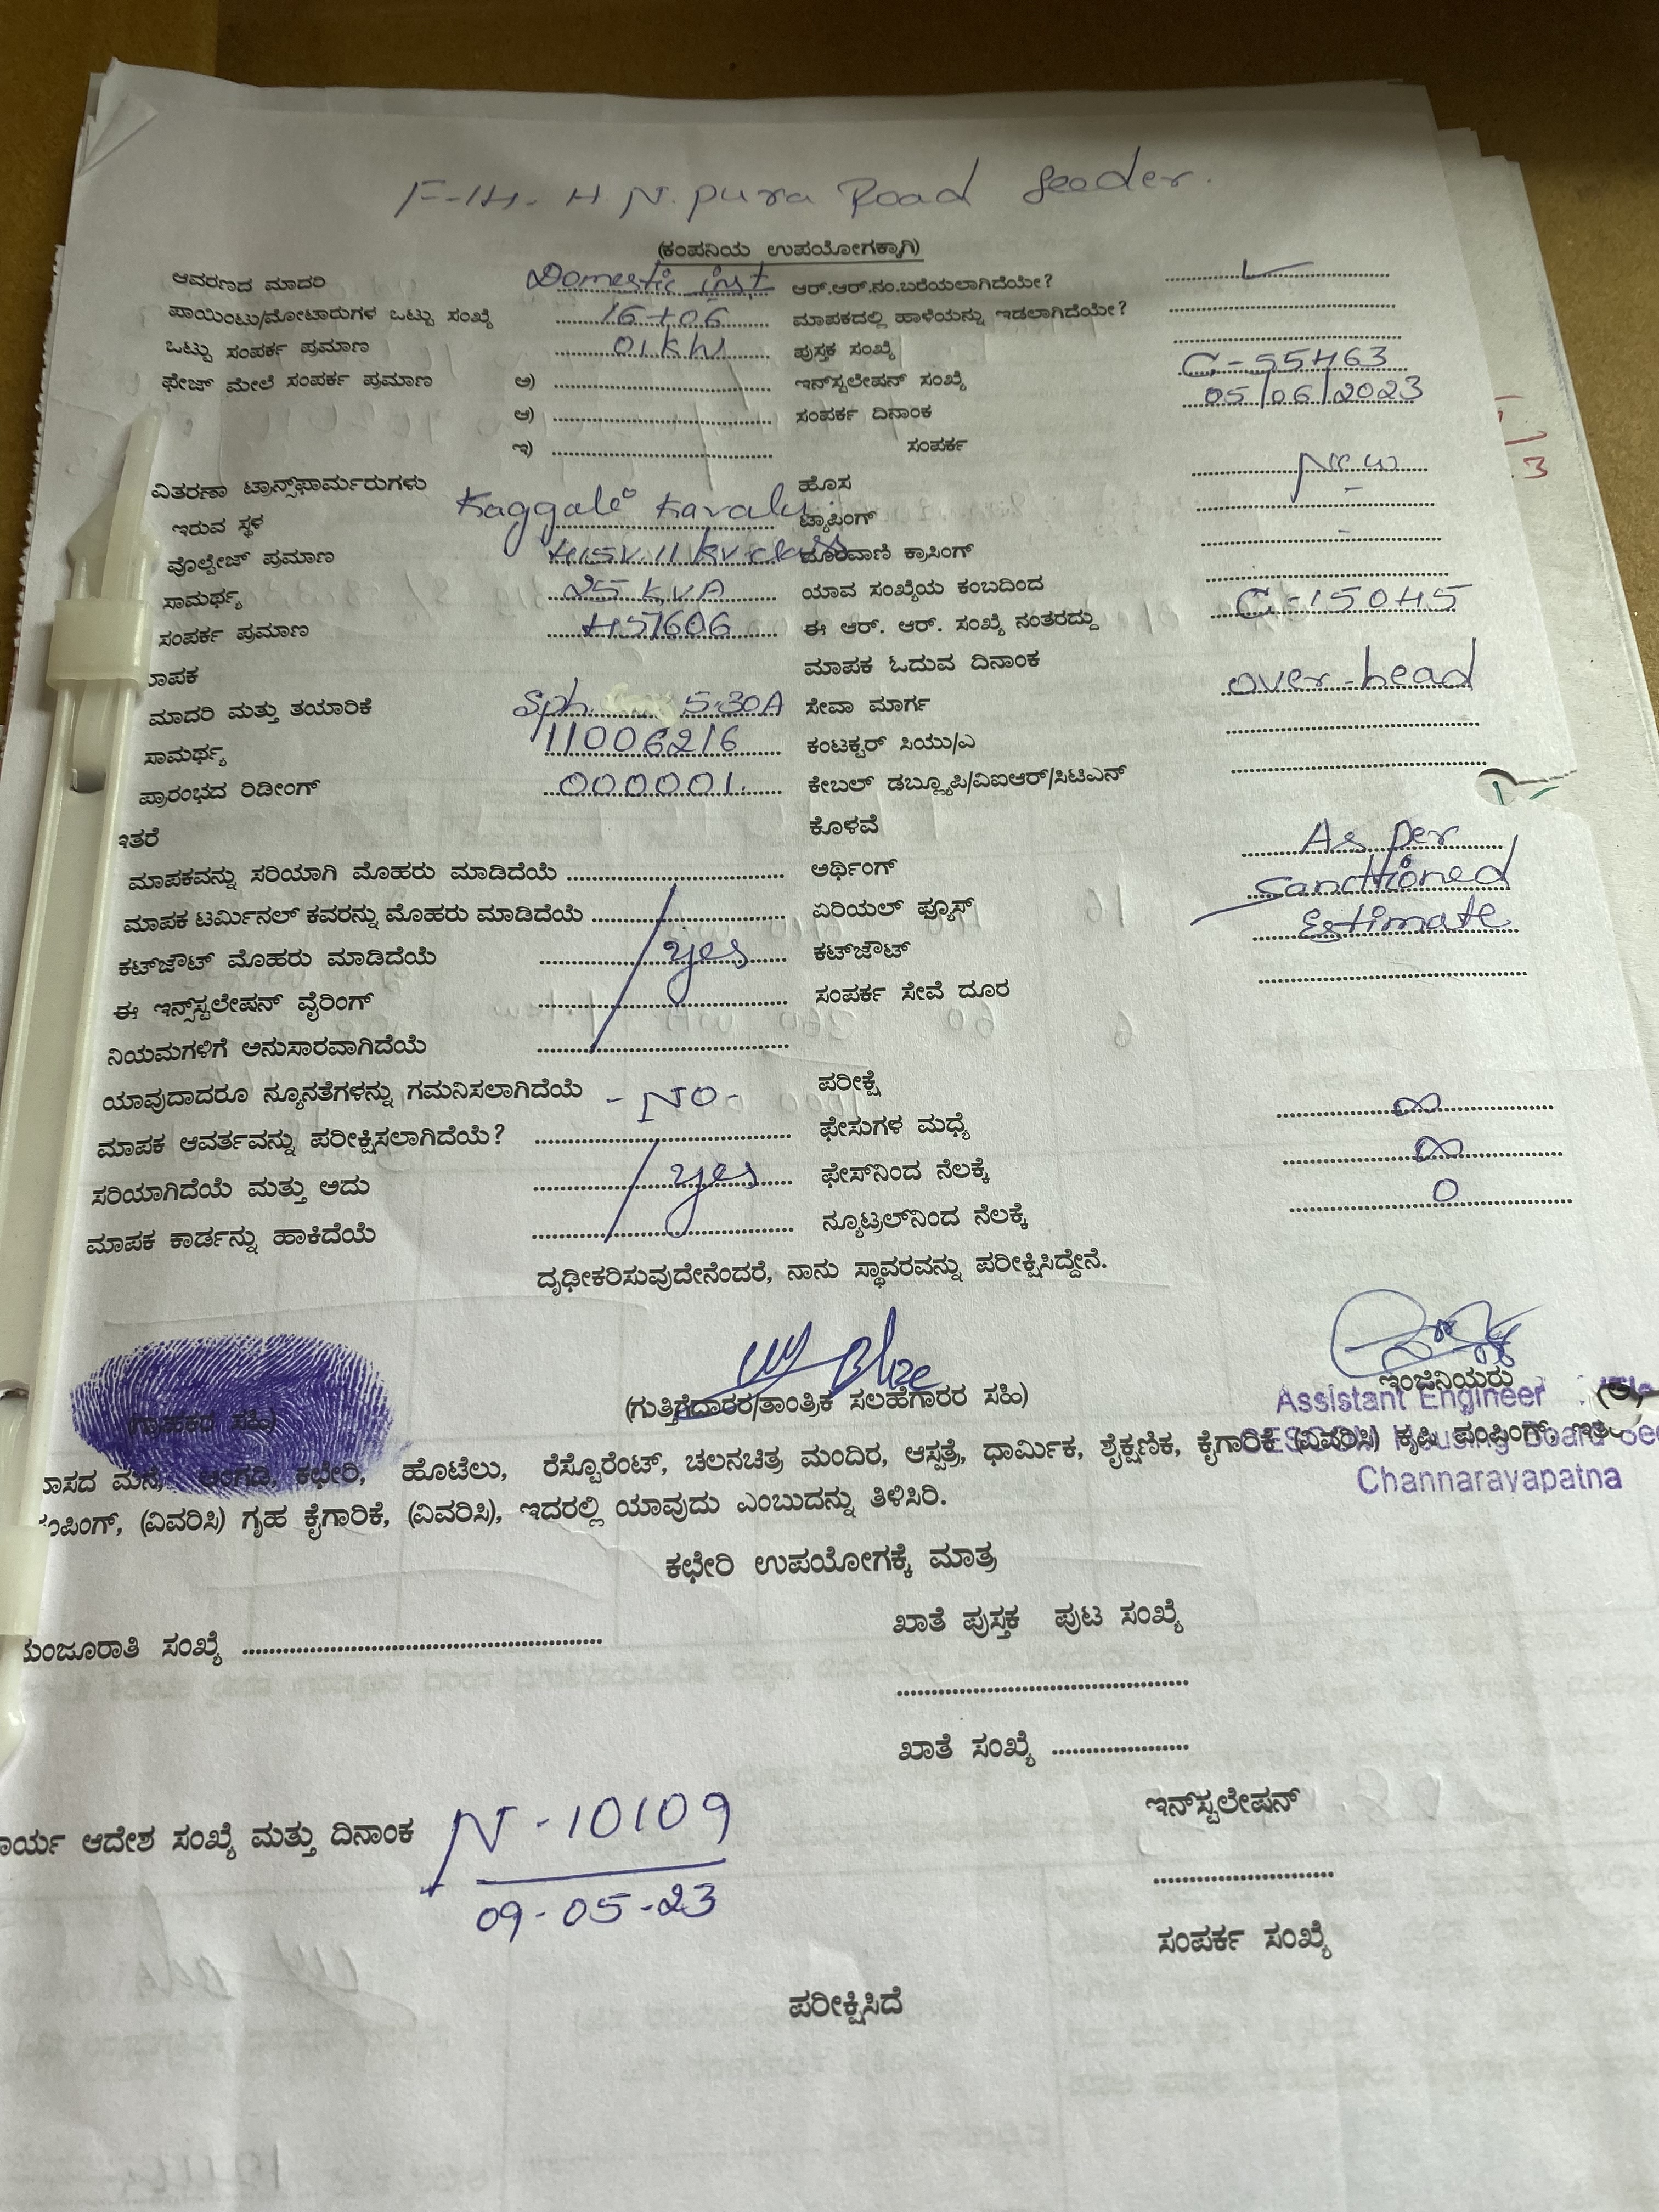 F-14. H.N.pura Road feeder.
(ಕಂಪನಿಯ ಉಪಯೋಗಕ್ಕಾಗಿ)
ಆವರಣದ ಮಾದರಿ Domestic inst ಆರ್.ಆರ್.ನಂ.ಬರೆಯಲಾಗಿದೆಯೇ?
ಪಾಯಿಂಟು/ಮೋಟಾರುಗಳ ಒಟ್ಟು ಸಂಖ್ಯೆ 16+06 ಮಾಪಕದಲ್ಲಿ ಹಾಳೆಯನ್ನು ಇಡಲಾಗಿದೆಯೇ?
ಒಟ್ಟು ಸಂಪರ್ಕ ಪ್ರಮಾಣ 01 KW ಪುಸ್ತಕ ಸಂಖ್ಯೆ
ಫೇಜ್ ಮೇಲೆ ಸಂಪರ್ಕ ಪ್ರಮಾಣ ಅ) ಇನ್‌ಸ್ಟಲೇಷನ್ ಸಂಖ್ಯೆ C-55463
ಆ) ಸಂಪರ್ಕ ದಿನಾಂಕ 05/06/2023
ಇ) ಸಂಪರ್ಕ
ವಿತರಣಾ ಟ್ರಾನ್ಸ್‌ಫಾರ್ಮರುಗಳು ಹೊಸ New
ಇರುವ ಸ್ಥಳ Kaggale Kavalu ಟ್ಯಾಪಿಂಗ್ -
ವೊಲ್ಟೇಜ್ ಪ್ರಮಾಣ 415V. 11 KV class ದೂರವಾಣಿ ಕ್ರಾಸಿಂಗ್ -
ಸಾಮರ್ಥ್ಯ 25 KVA ಯಾವ ಸಂಖ್ಯೆಯ ಕಂಬದಿಂದ
ಸಂಪರ್ಕ ಪ್ರಮಾಣ 457606 ಈ ಆರ್. ಆರ್. ಸಂಖ್ಯೆ ನಂತರದ್ದು C-15045
ಮಾಪಕ ಮಾಪಕ ಓದುವ ದಿನಾಂಕ
ಮಾದರಿ ಮತ್ತು ತಯಾರಿಕೆ Sph. 5-30A ಸೇವಾ ಮಾರ್ಗ over-head
ಸಾಮರ್ಥ್ಯ 11006216 ಕಂಟಕ್ಟರ್ ಸಿಯು/ಎ
ಪ್ರಾರಂಭದ ರಿಡೀಂಗ್ 000001. ಕೇಬಲ್ ಡಬ್ಲ್ಯೂಪಿ/ವಿಐಆರ್/ಸಿಟಿಎನ್
ಇತರೆ ಕೊಳವೆ
ಮಾಪಕವನ್ನು ಸರಿಯಾಗಿ ಮೊಹರು ಮಾಡಿದೆಯೆ ಅರ್ಥಿಂಗ್ As per
ಮಾಪಕ ಟರ್ಮಿನಲ್ ಕವರನ್ನು ಮೊಹರು ಮಾಡಿದೆಯೆ ಏರಿಯಲ್ ಫ್ಯೂಸ್ Sanctioned
ಕಟ್‌ಔಟ್ ಮೊಹರು ಮಾಡಿದೆಯೆ yes ಕಟ್‌ಔಟ್ Estimate
ಈ ಇನ್‌ಸ್ಟಲೇಷನ್ ವೈರಿಂಗ್ ಸಂಪರ್ಕ ಸೇವೆ ದೂರ
ನಿಯಮಗಳಿಗೆ ಅನುಸಾರವಾಗಿದೆಯೆ
ಯಾವುದಾದರೂ ನ್ಯೂನತೆಗಳನ್ನು ಗಮನಿಸಲಾಗಿದೆಯೆ - NO - ಪರೀಕ್ಷೆ
ಮಾಪಕ ಆವರ್ತವನ್ನು ಪರೀಕ್ಷಿಸಲಾಗಿದೆಯೆ? ಫೇಸುಗಳ ಮಧ್ಯೆ ∞
ಸರಿಯಾಗಿದೆಯೆ ಮತ್ತು ಅದು yes ಫೇಸ್‌ನಿಂದ ನೆಲಕ್ಕೆ ∞
ಮಾಪಕ ಕಾರ್ಡನ್ನು ಹಾಕಿದೆಯೆ ನ್ಯೂಟ್ರಲ್‌ನಿಂದ ನೆಲಕ್ಕೆ 0
ದೃಢೀಕರಿಸುವುದೇನೆಂದರೆ, ನಾನು ಸ್ಥಾವರವನ್ನು ಪರೀಕ್ಷಿಸಿದ್ದೇನೆ.
(ಗ್ರಾಹಕರ ಸಹಿ) (ಗುತ್ತಿಗೆದಾರರ/ತಾಂತ್ರಿಕ ಸಲಹೆಗಾರರ ಸಹಿ) ಇಂಜಿನಿಯರು
Assistant Engineer
Housing Board
Channarayapatna
ವಾಸದ ಮನೆ, ಅಂಗಡಿ, ಕಛೇರಿ, ಹೊಟೆಲು, ರೆಸ್ಟೋರೆಂಟ್, ಚಲನಚಿತ್ರ ಮಂದಿರ, ಆಸ್ಪತ್ರೆ, ಧಾರ್ಮಿಕ, ಶೈಕ್ಷಣಿಕ, ಕೈಗಾರಿಕೆ (ವಿವರಿಸಿ) ಕೃಷಿ ಪಂಪಿಂಗ್,
ಪಂಪಿಂಗ್, (ವಿವರಿಸಿ) ಗೃಹ ಕೈಗಾರಿಕೆ, (ವಿವರಿಸಿ), ಇದರಲ್ಲಿ ಯಾವುದು ಎಂಬುದನ್ನು ತಿಳಿಸಿರಿ.
ಕಛೇರಿ ಉಪಯೋಗಕ್ಕೆ ಮಾತ್ರ
ಮಂಜೂರಾತಿ ಸಂಖ್ಯೆ ಖಾತೆ ಪುಸ್ತಕ ಪುಟ ಸಂಖ್ಯೆ
ಖಾತೆ ಸಂಖ್ಯೆ
ಇನ್‌ಸ್ಟಲೇಷನ್
ಕಾರ್ಯ ಆದೇಶ ಸಂಖ್ಯೆ ಮತ್ತು ದಿನಾಂಕ N-10109
09-05-23
ಸಂಪರ್ಕ ಸಂಖ್ಯೆ
ಪರೀಕ್ಷಿಸಿದೆ